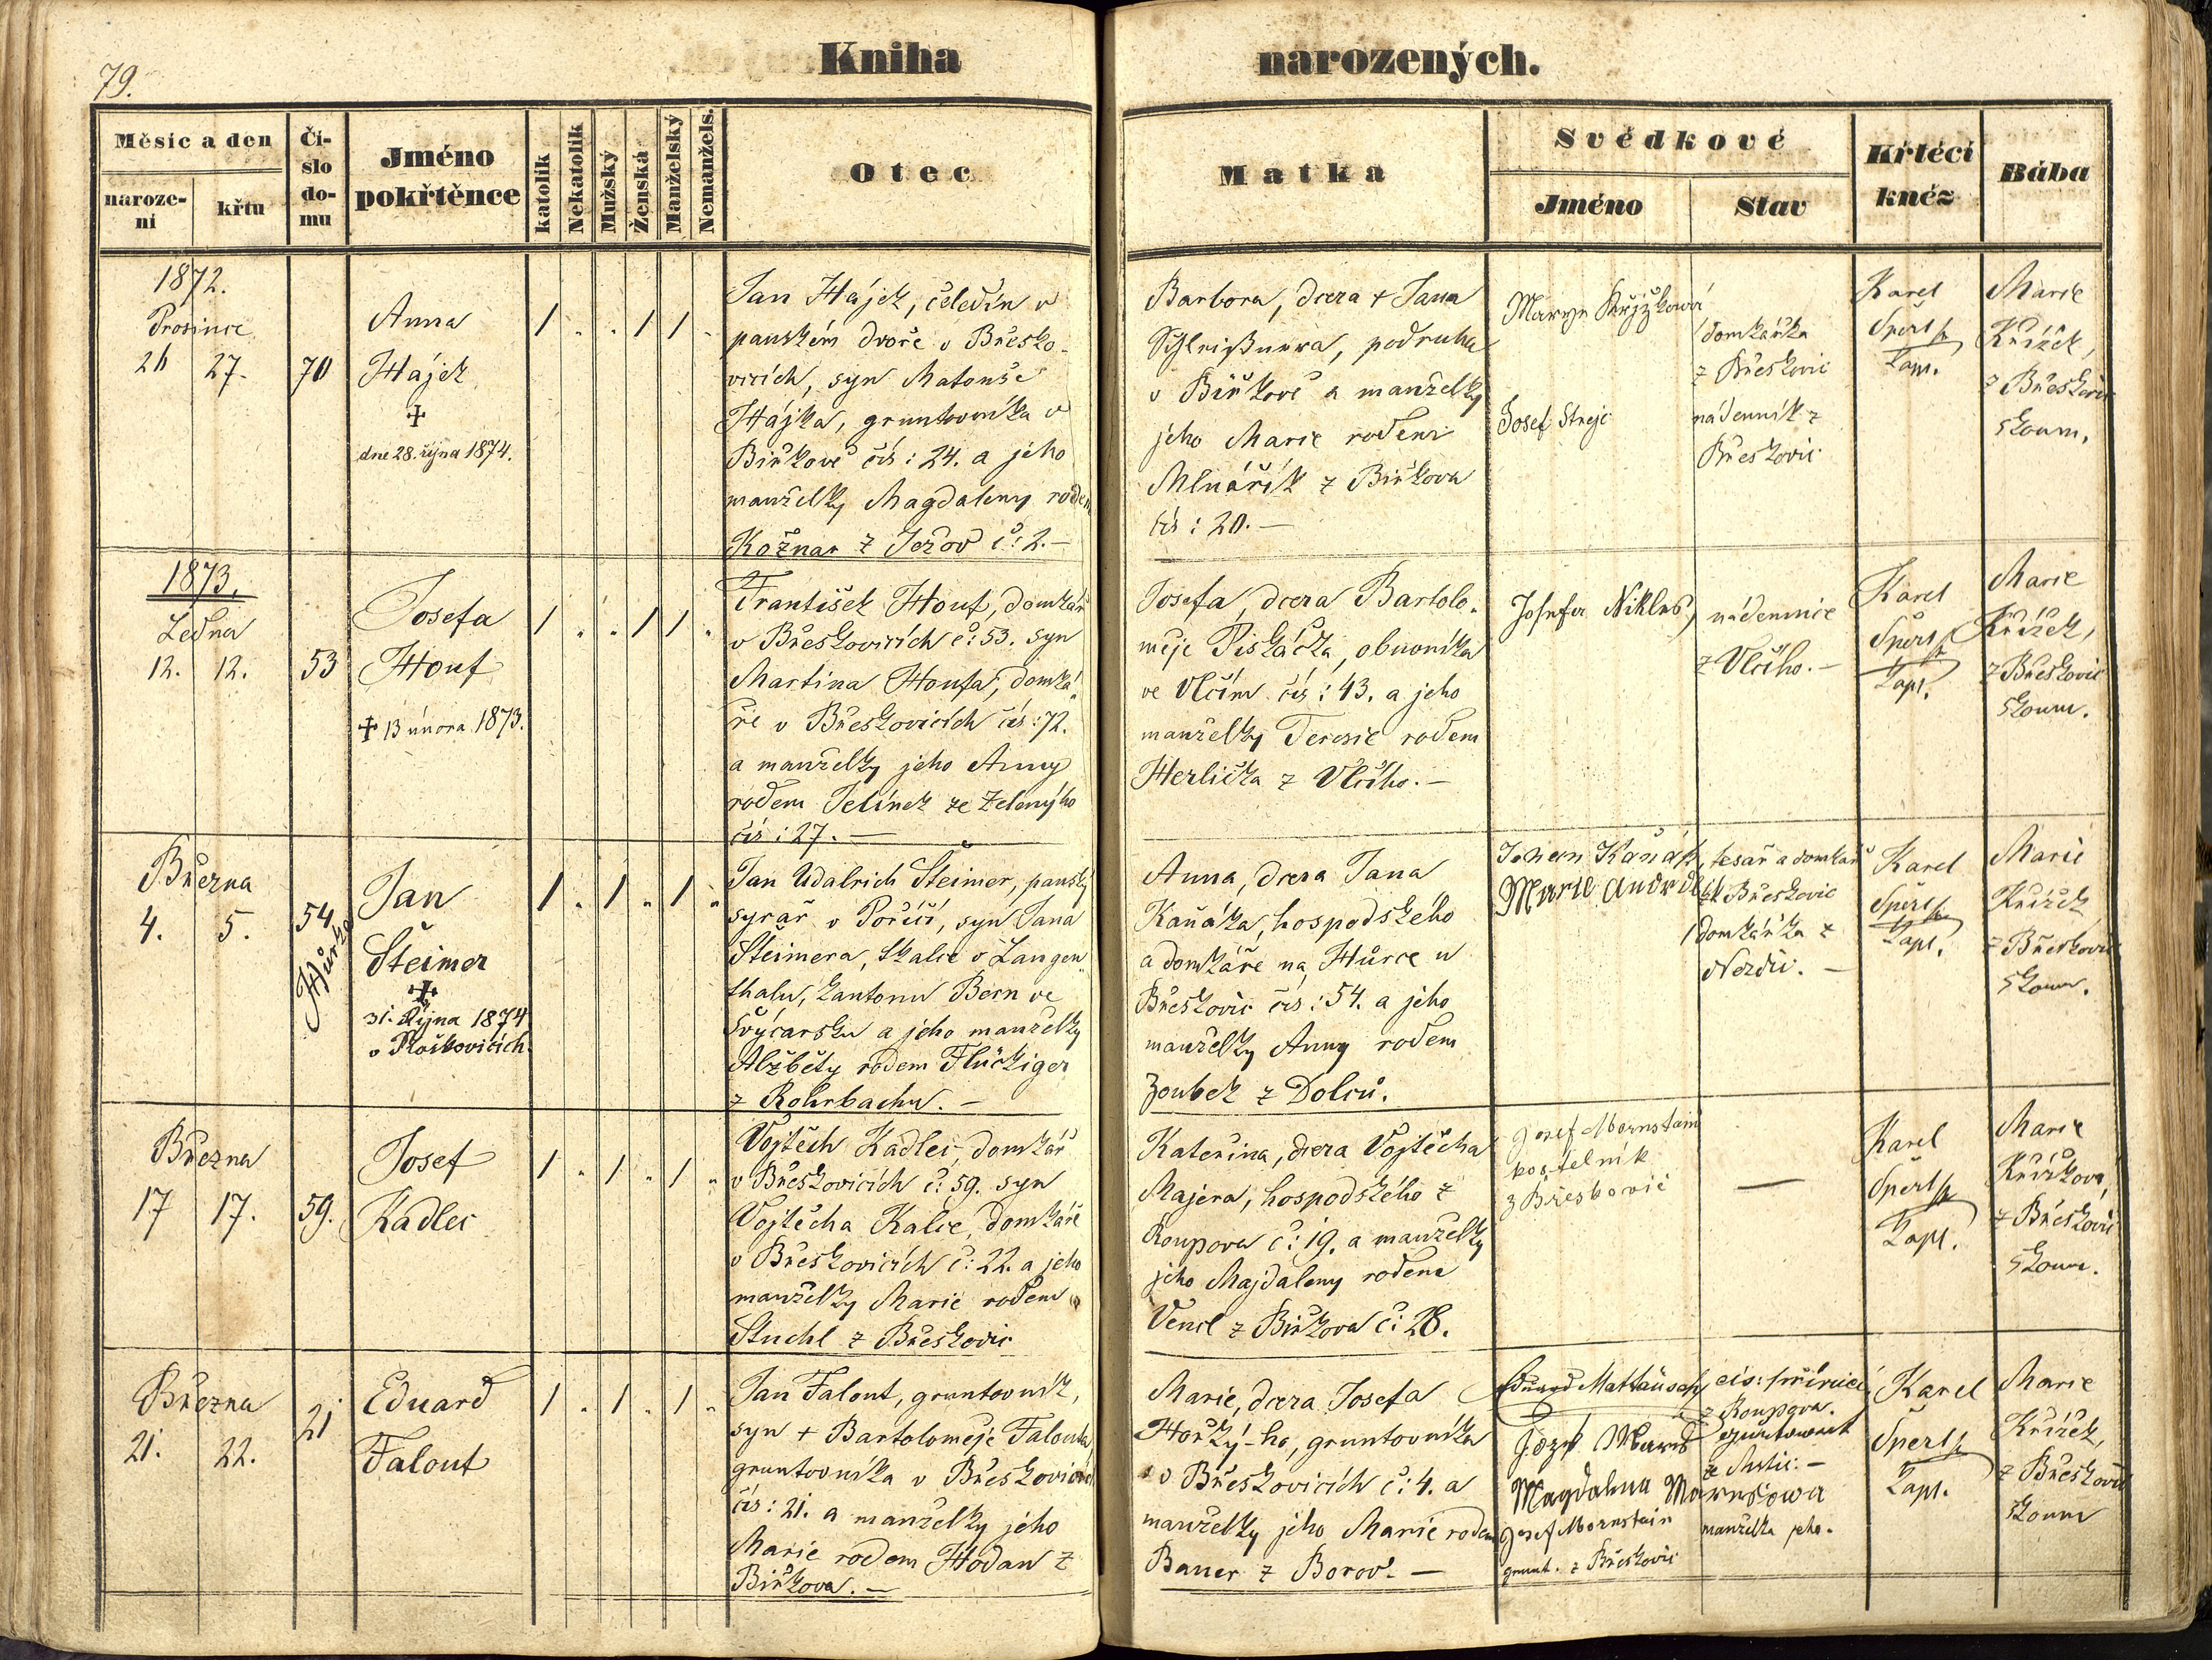 79.
Kniha narozených.
Měsíc a den
naroze-
ni
křtu
Čí-
slo
do-
mu
Jméno
pokřtěnce
katolík
Nekatolík
Mužský
Ženská
Manželský
Nemanžels.
Otec
Matka
Svědkové
Jméno
Stav
Křtěcí
kněz
Bába
1872.
Prosince
26 27. 70
Anna
Hájek
✝
dne 28. října 1874.
1 " " 1 1 "
Jan Hájek, čeledín v
panském dvoře v Břesko-
vicích, syn Matouše
Hájka, gruntovníka v
Biřkově čís: 24. a jeho
manželky Magdaleny rodem
Kožnar z Ježov č: 2.—
Barbora, dcera + Jana
podruha
v Biřkově a manželky
jeho Marie rodem
Mlnářík z Biřkova
čís: 20.—
Josef Strejc
domkářka
z Břeskovic
nádenník z
Břeskovic
Karel
Šperl
Kapl.
Marie
Křížek,
z Břeskovic
zkoum.
1873.
Ledna
12. 12. 53
Josefa
Houf
✝ 13 února 1873.
1 " " 1 1 "
František Houf, domkář
v Břeskovicích č: 53. syn
Martina Houfa, domká-
ře v Břeskovicích čís: 72.
a manželky jeho Anny
rodem Jelínek ze Zelenýho
čís: 27.—
Josefa, dcera Bartolo-
měje Piskáčka, obuvníka
ve Vlčím čís: 43. a jeho
manželky Teresie rodem
Herlička z Vlčího.—
Josefa Niklas,
nádennice
z Vlčího.—
Karel
Šperl
Kapl.
Marie
Křížek,
z Břeskovic
zkoum.
Března
4. 5. 54
Hůrka
Jan
Šteimer
✝
31. Října 1874
v Roškovicích.
1 " 1 " 1 "
Jan Udalrich Šteimer, panský
syrař v Poříčí, syn Jana
Šteimera, tkalce v Langen-
thalu, kantonu Bern ve
Švýcarsku a jeho manželky
Alžběty rodem Flückiger
z Rohrbachu.—
Anna, dcera Jana
Kaňáka, hospodského
a domkáře na Hůrce u
Břeskovic čís: 54. a jeho
manželky Anny rodem
Zoubek z Dolců.
Johan Kaňák,
Marie
tesař a domkář
z Břeskovic
domkářka z
Nezdic.—
Karel
Šperl
Kapl.
Marie
Křížek
z Břeskovic
zkoum.
Března
17 17. 59.
Josef
Kadlec
1 " 1 " 1 "
Vojtěch Kadlec, domkář
v Břeskovicích č: 59. syn
Vojtěcha Kalce, domkáře
v Břeskovicích č: 22. a jeho
manželky Marie rodem
Stuchl z Břeskovic
Kateřina, dcera Vojtěcha
Majera, hospodského z
Roupova č: 19. a manželky
jeho Majdaleny rodem
Vencl z Biřkova č: 28.
Josef Mornstain
kostelník
z Břeskovic
—
Karel
Šperl
Kapl.
Marie
Křížková,
z Břeskovic
zkoum.
Března
21. 22. 21
Eduard
Falout
1 " 1 " 1 "
Jan Falout, gruntovník,
syn + Bartoloměje Falouta,
gruntovníka v Břeskovicích
čís: 21. a manželky jeho
Marie rodem Hodan z
Biřkova.—
Marie, dcera Josefa
Horký-ho, gruntovníka
v Břeskovicích č: 4. a
manželky jeho Marie rodem
Bauer z Borov.—
Eduard
z Roupova.
Magdalena
manželka jeho.
Josef Mornstain
grunt. z Břeskovic
Karel
Šperl
Kapl.
Marie
Křížek,
z Břeskovic
zkoum